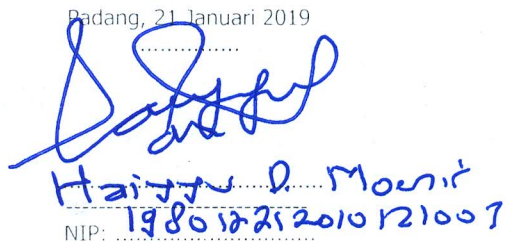 Padang, 21 Januari 2019
D. Moenir
NIP: 198012212010121003